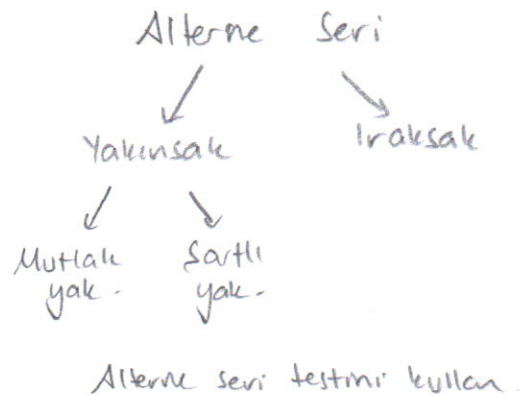 Alterne Seri
Yakınsak
Iraksak
Mutlak
yak.
Şartlı
yak.
Alterne seri testini kullan.